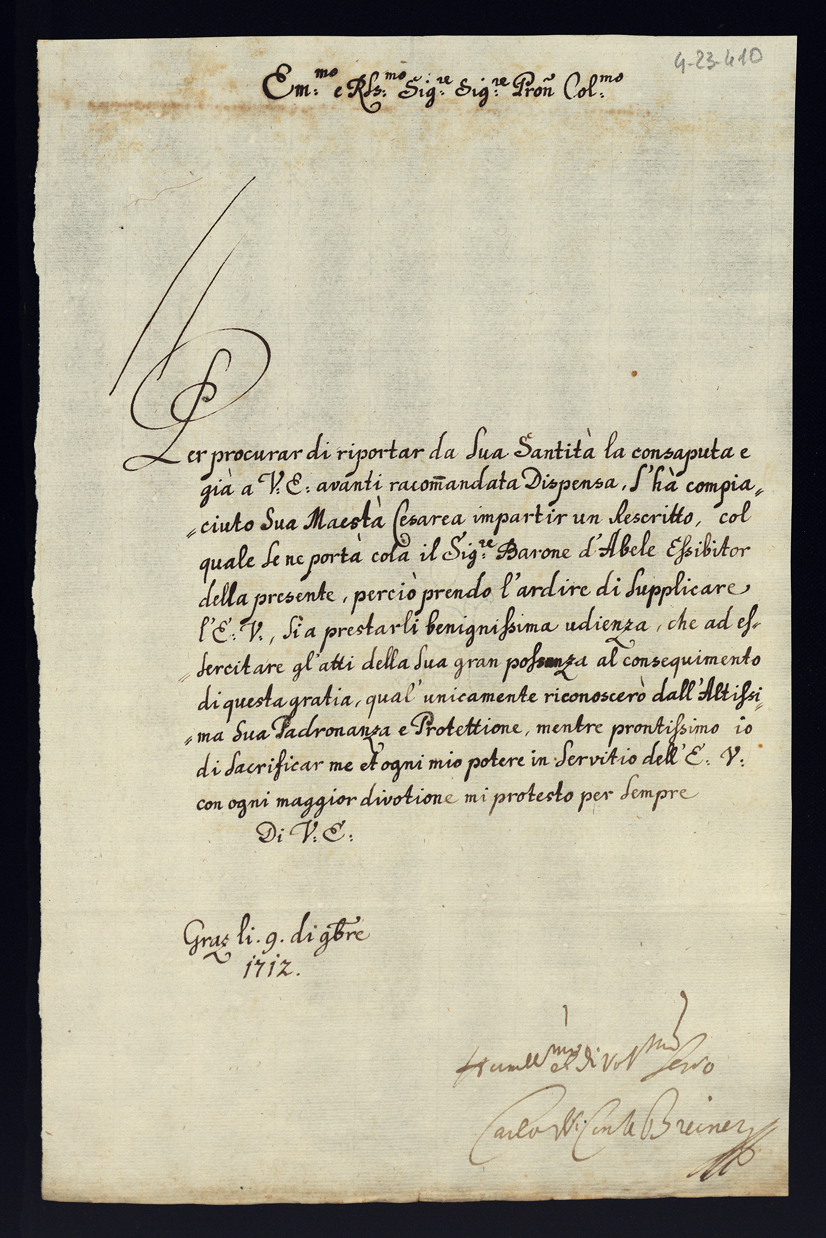 4-23-410
Em:mo e R̃ss:mo Sig:re Sig:re Proñ Col:mo
Per procurar di riportar da Sua Santità la consaputa e
già a V: E: avanti racom̃andata Dispensa, s'hà compia„
„ciuto Sua Maestà Cesarea impartir un Rescritto, col
quale se ne portà colà il Sig:re Barone d'Abele Essibitor
della presente, perciò prendo l'ardire di supplicare
l'E: V:, sia prestarli benignissima udienza, che ad es„
„sercitare gl'atti della Sua gran possanza al conseguimento
di questa gratia, qual' unicamente riconoscerò dall'Altissi„
„ma Sua Padronanza e Protettione, mentre prontissimo io
di sacrificar me et ogni mio potere in servitio dell'E: V:
con ogni maggior divotione mi protesto per sempre
Di V: E:
Graz li. 9. di 9bre
1712.
Humill.mo e divot.mo servo
Carlo Conte Breiner